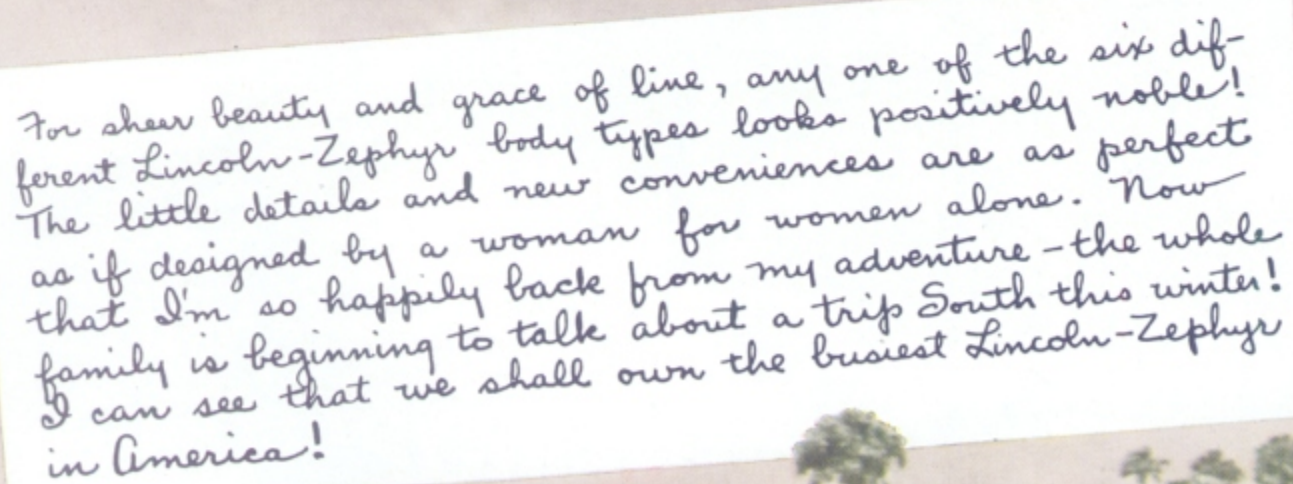 For sheer beauty and grace of line, any one of the six dif-
ferent Lincoln-Zephyr body types looks positively noble!
The little details and new conveniences are as perfect
as if designed by a woman for women alone. Now
that I'm so happily back from my adventure - the whole
family is beginning to talk about a trip South this winter!
I can see that we shall own the busiest Lincoln-Zephyr
in America!